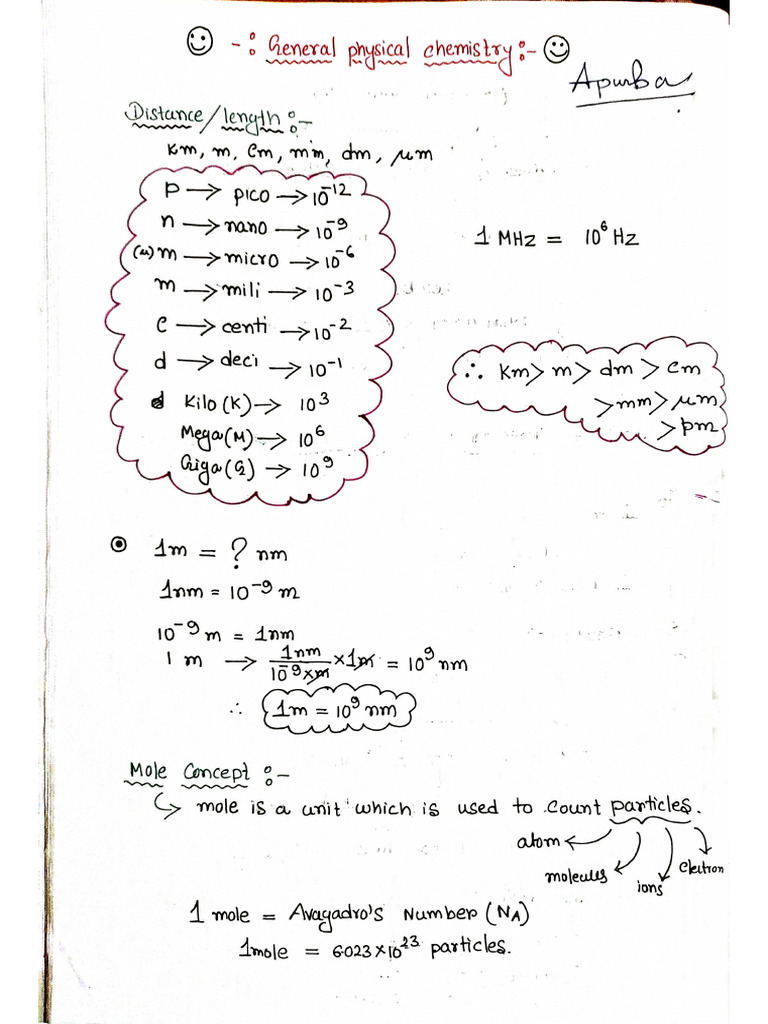 ☺ -: General physical chemistry:- ☺
Apurba
Distance/length:-
Km, m, Cm, mm, dm, μm
P → pico → 10⁻¹²
n → nano → 10⁻⁹
(μ)m → micro → 10⁻⁶
m → mili → 10⁻³
C → centi → 10⁻²
d → deci → 10⁻¹
Kilo (K) → 10³
Mega (M) → 10⁶
Giga (G) → 10⁹
1 MHz = 10⁶ Hz
∴ Km > m > dm > Cm
> mm > μm
> pm
1m = ? nm
1nm = 10⁻⁹ m
10⁻⁹ m = 1nm
1 m → 1nm / 10⁻⁹ × m × 1m = 10⁹ nm
∴ 1m = 10⁹ nm
Mole Concept :-
↳ mole is a unit which is used to count particles.
atom
molecules
ions
electron
1 mole = Avagadro's Number (Nᴀ)
1mole = 6.023 × 10²³ particles.